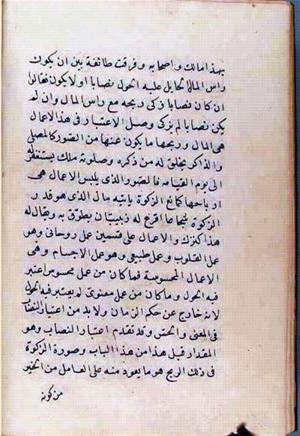 بهذا مالك واصحابه وفرقت طائفة بين ان يكون
راس المال الحايل عليه الحول نصابا او لا يكون فقالوا
ان كان نصابا زكى ربحه مع راس المال وان لم
يكن نصابا لم يزك وصل الاعتبار فى هذا الاعمال
هى المال وربحها ما يكون عنها من الصور كالمصلى
والذاكر يخلق له من ذكره وصلوته ملك يستغفر له
الى يوم القيامة فالصور الذى يلبس الاعمال هى
ارباحها كمانع الزكوة ياتيه مال الذى هو قدر
الزكوة شجاعا اقرع له زبيبتان يطوق به ويقال له
هذا كنزك والاعمال على قسمين عمل روحانى وهو
عمل القلوب وعمل طبيعى وهو عمل الاجسام وهى
الاعمال المحسوسة فما كان من عمل محسوس اعتبر
فيه الحول وما كان من عمل معنوى لم يعتبر فيه الحول
لانه خارج عن حكم الزمان ولا بد من اعتبار النصاب
فى المعنى والحس وقد تقدم اعتبار النصاب وهو
المقدار قبل هذا من هذا الباب وصورة الزكوة
فى ذلك الربح هو ما يعود منه على العامل من الخير
من كونه